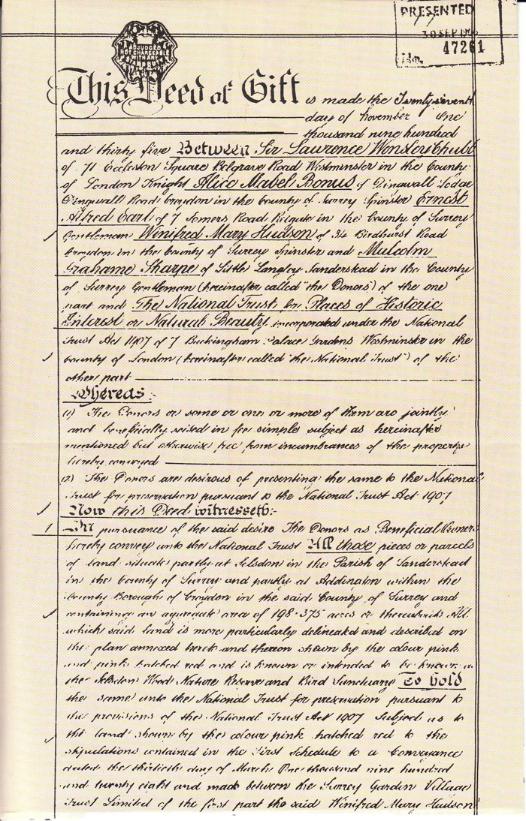 PRESENTED
30 SEP
47261
This Deed of Gift is made the Twenty seventh
day of November One
thousand nine hundred
and thirty five Between Sir Lawrence Wensley Chubb
of 71 Eccleston Square Belgrave Road Westminster in the County
of London Knight Alice Mabel Bonus of Dingwall Lodge
Dingwall Road Croydon in the County of Surrey Spinster Ernest
Alfred Earl of 7 Somers Road Reigate in the County of Surrey
Gentleman Winifred Mary Hudson of 34 Birdhurst Road
Croydon in the County of Surrey Spinster and Malcolm
Grahame Sharpe of Langley Sanderstead in the County
of Surrey Gentleman (hereinafter called "the Donors") of the one
part and The National Trust for Places of Historic
Interest or Natural Beauty incorporated under the National
Trust Act 1907 of 7 Buckingham Palace Gardens Westminster in the
County of London (hereinafter called "the National Trust") of the
other part
Whereas:-
(1) The Donors or some or one or more of them are jointly
and beneficially seised in fee simple subject as hereinafter
mentioned but otherwise free from incumbrances of the property
hereby conveyed
(2) The Donors are desirous of presenting the same to the National
Trust for preservation pursuant to the National Trust Act 1907
Now this Deed witnesseth:-
1 In pursuance of the said desire The Donors as Beneficial Owners
hereby convey unto the National Trust All those pieces or parcels
of land situate partly at Selsdon in the Parish of Sanderstead
in the County of Surrey and partly at Addington within the
County Borough of Croydon in the said County of Surrey and
containing an aggregate area of 198.375 acres or thereabouts All
which said land is more particularly delineated and described on
the plan annexed hereto and thereon shown by the colour pink
and pink hatched red and is known or intended to be known as
the Selsdon Wood Nature Reserve and Bird Sanctuary To hold
the same unto the National Trust for preservation pursuant to
the provisions of the National Trust Act 1907 Subject as to
the land shown by the colour pink hatched red to the
stipulations contained in the First Schedule to a Conveyance
dated the thirtieth day of March One thousand nine hundred
and twenty eight and made between the Surrey Garden Village
Trust Limited of the first part the said Winifred Mary Hudson